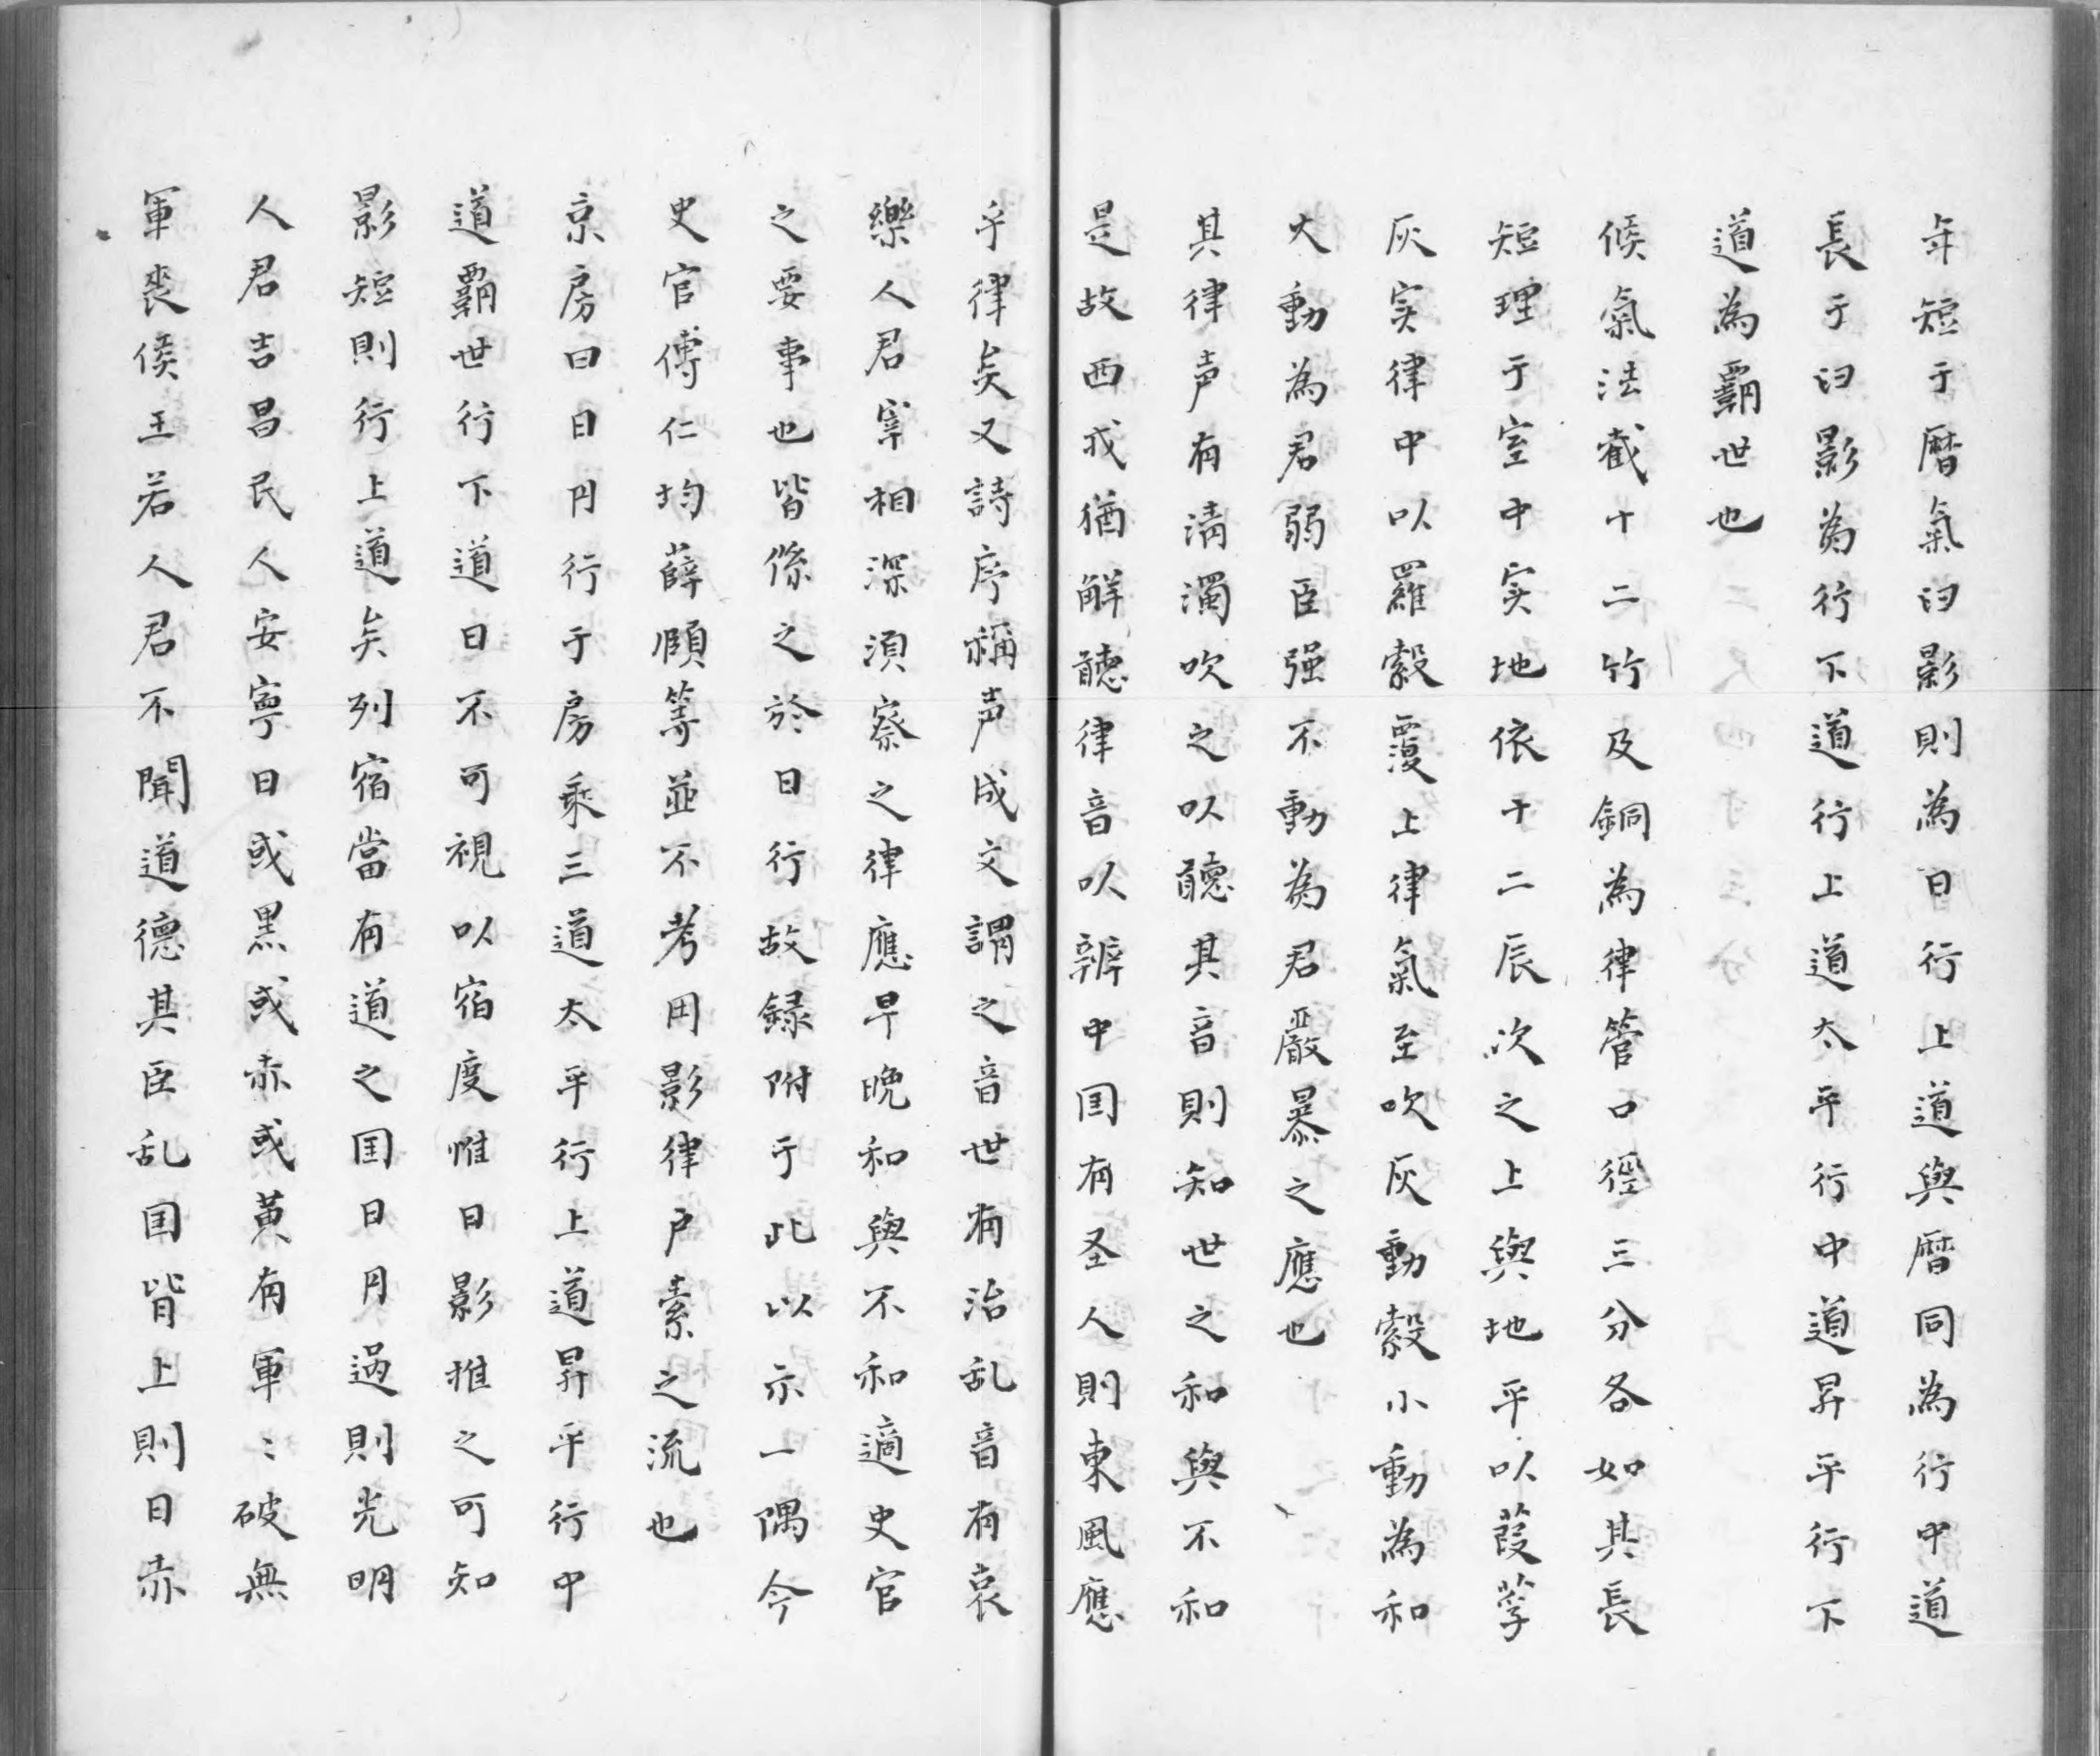 年短于暦氣日影則為日行上道與暦同為行中道
長于日影為行下道行上道太平行中道昇平行下
道為霸世也
候氣法截十二竹及銅為律管口徑三分各如其長
短理于室中实地依十二辰次之上與地平以葭莩
灰実律中以羅縠覆上律氣至吹灰動縠小動為和
大動為君弱臣强不動為君嚴暴之應也
其律声有清濁吹之以聽其音則知世之和與不和
是故西戎猶解聽律音以辨中国有圣人則東風應
乎律矣又詩序稱声成文謂之音世有治乱音有哀
樂人君宰相深須察之律應早晚和與不和適史官
之要事也皆係之於日行故録附于此以示一隅今
史官傅仁均薛頤等並不考用影律戸素之流也
京房曰日月行于房乘三道太平行上道昇平行中
道霸世行下道日不可視以宿度惟日影推之可知
影短則行上道矣列宿當有道之国日月過則光明
人君吉昌民人安寧日或黒或赤或黄有軍〻破無
軍喪侯王若人君不聞道德其臣乱国皆上則日赤